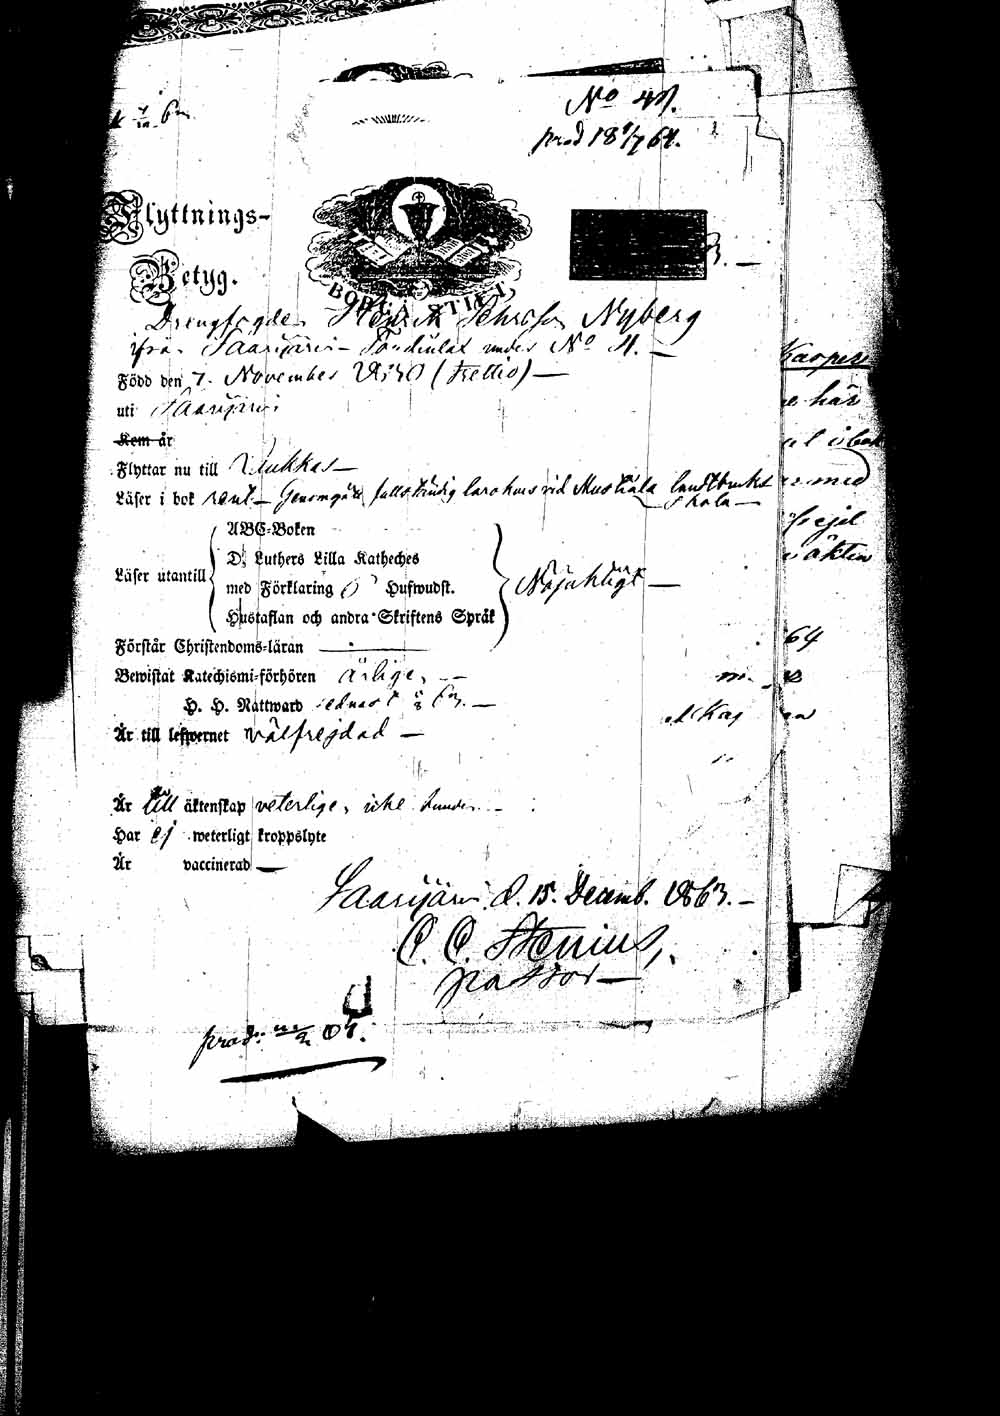 No 47.
prod 18 1/7 64.
Flyttnings-
Betyg.
BORGÅ STIFT.
Drengfogden Henrik Nyberg
ifrån Saarijärvi under No 4.
Född den 7. November 1830 (trettio)
uti Saarijärvi
Kem år
Flyttar nu till
Läser i bok rent. Genomgått fullständig lärokurs vid Mustiala landtbruks
skola
Läser utantill
ABC-Boken
D. Luthers Lilla Katheches
med Förklaring Hufwudst.
Hustaflan och andra Skriftens Språk
Nöjaktigt
Förstår Christendoms-läran
Bewistat Katechismi-förhören årlige
H. H. Nattward sednast 63.
Är till lefwernet välfrejdad
Är till äktenskap veterligen icke bunden
Har ej weterligt kroppslyte
Är vaccinerad
Saarijärvi d. 15. Decemb. 1863.
C. C. Stenius,
pastor
prod. 64.
Kasper
här
med
ejel
äkten
64